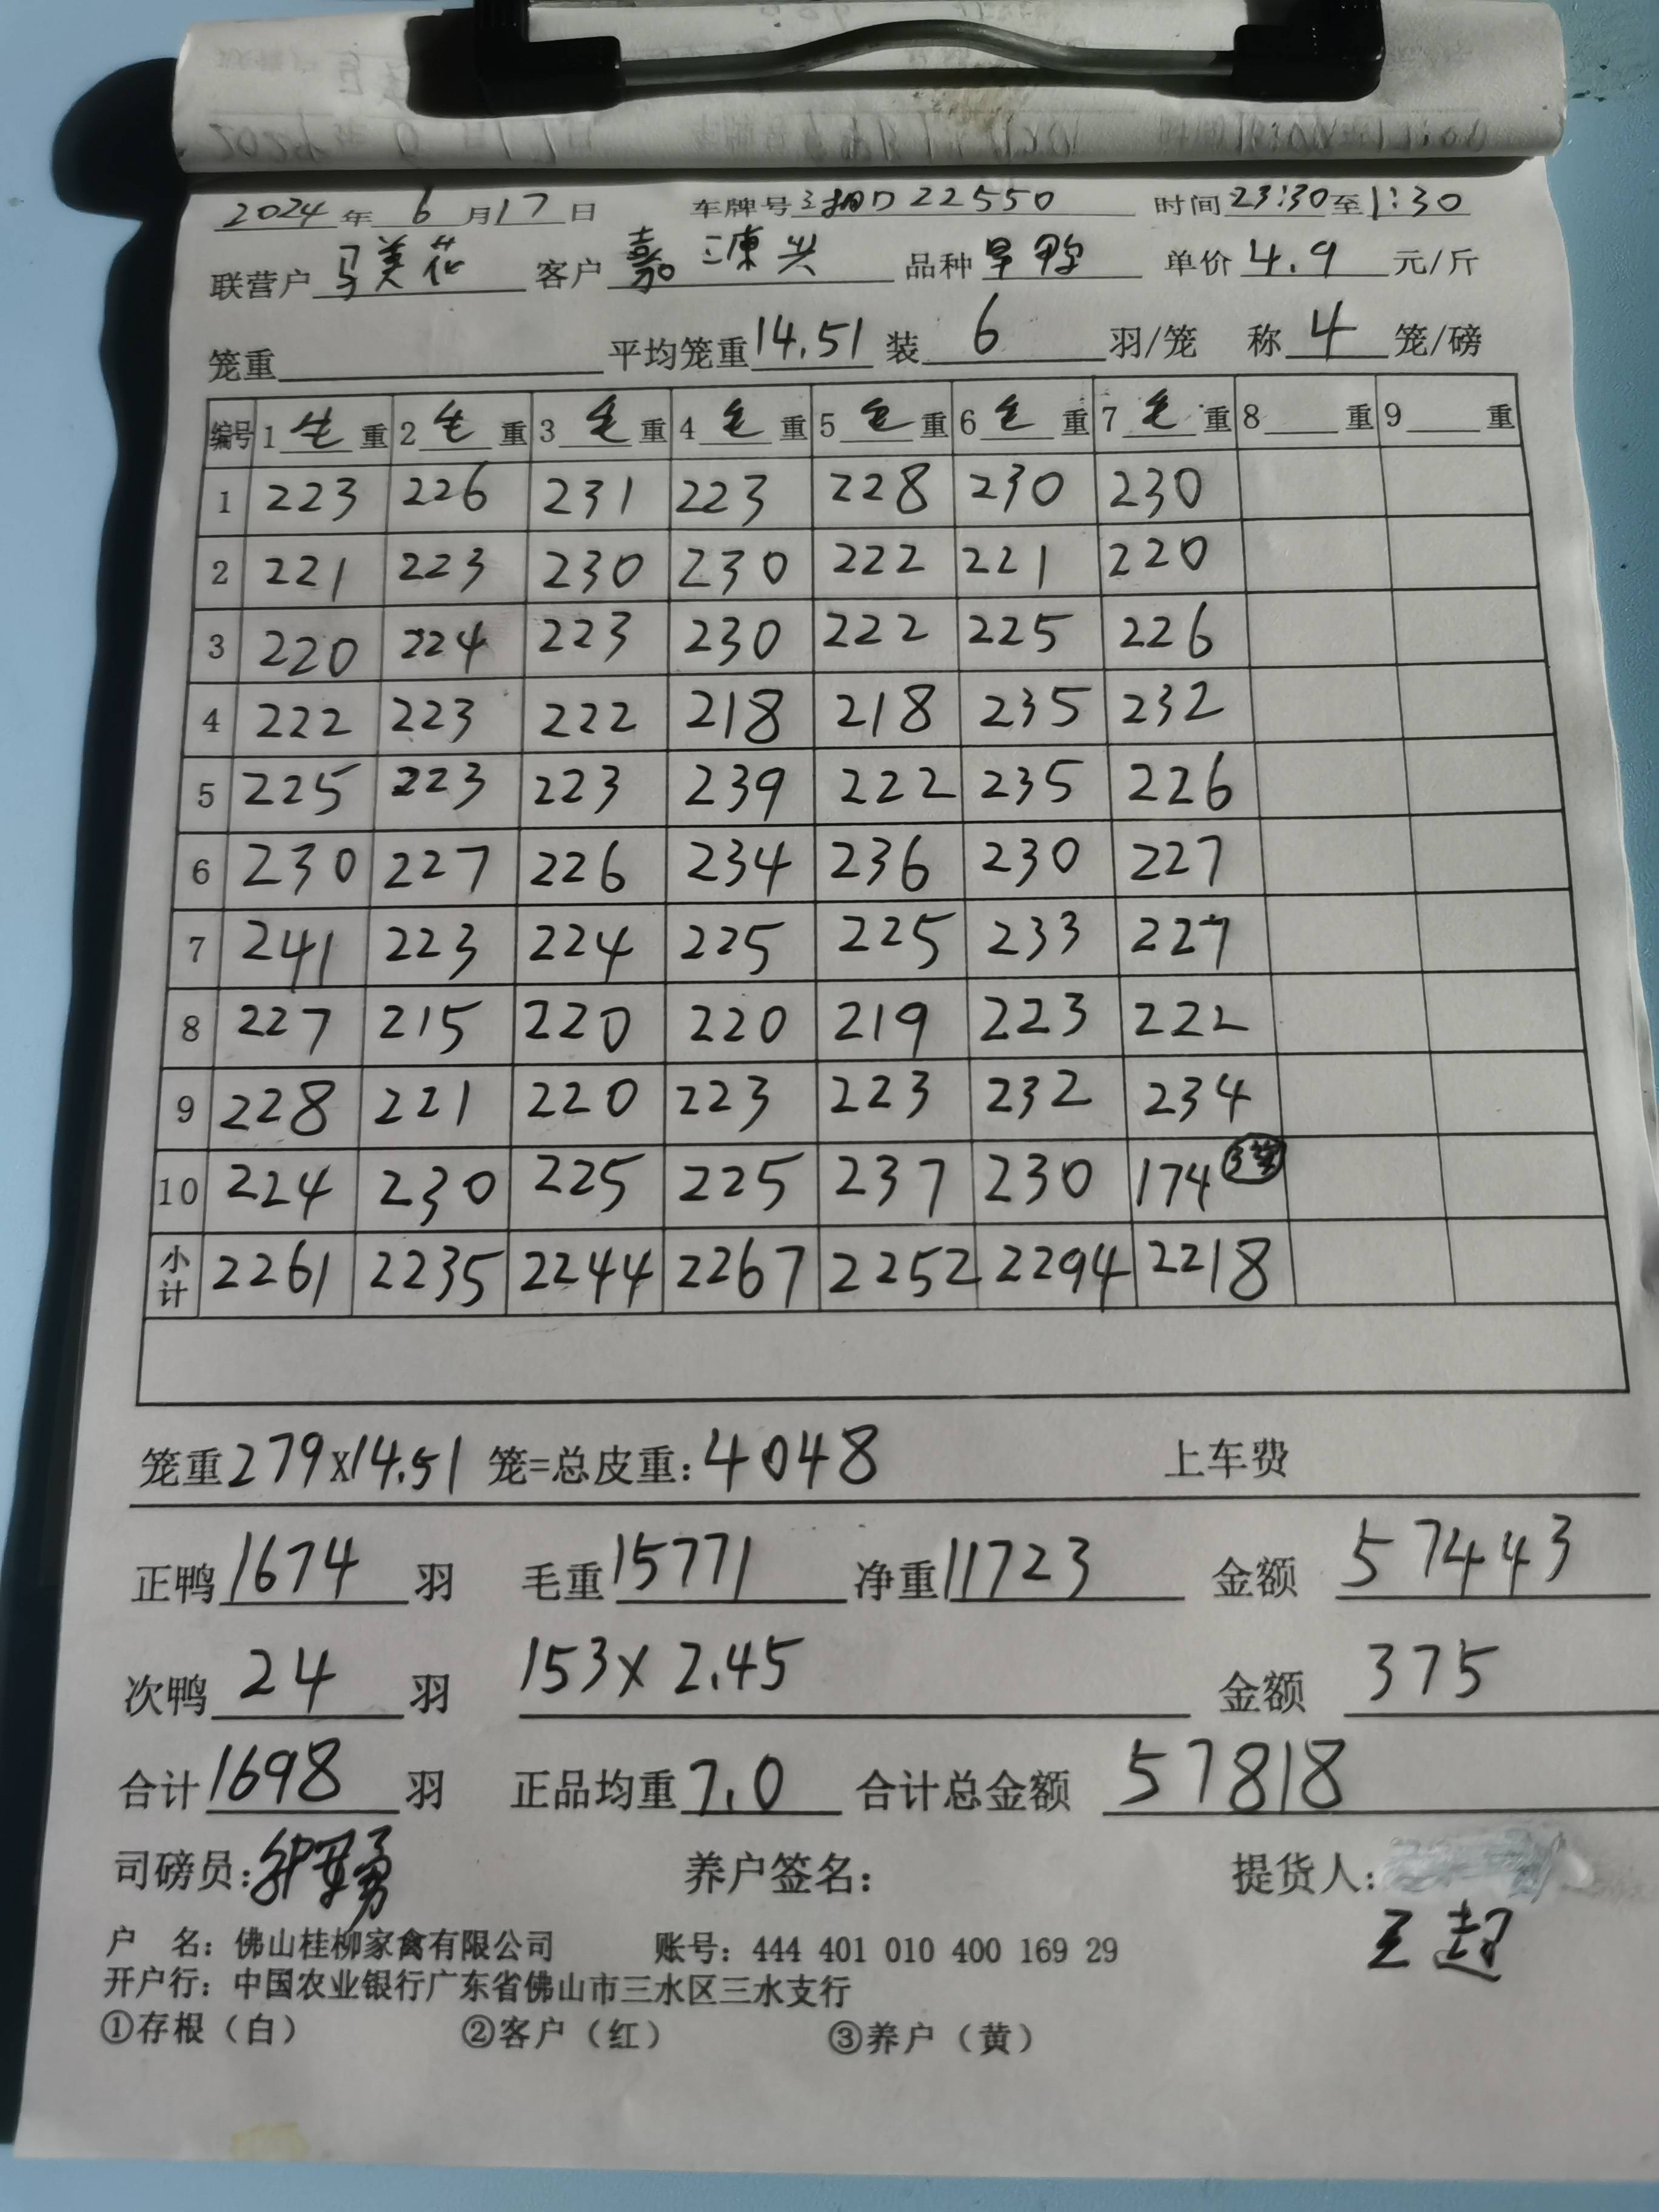 2024年6月17日 车牌号 D22550 时间23:30至1:30
联营户 马美花 客户 嘉源兴 品种 旱鸭 单价 4.9 元/斤
笼重 平均笼重14.51 装 6 羽/笼 称 4 笼/磅
编号 1毛重 2毛重 3毛重 4毛重 5毛重 6毛重 7毛重 8 重 9 重
1 223 226 231 223 228 230 230
2 221 223 230 230 222 221 220
3 220 224 223 230 222 225 226
4 222 223 222 218 218 235 232
5 225 223 223 239 222 235 226
6 230 227 226 234 236 230 227
7 241 223 224 225 225 233 227
8 227 215 220 220 219 223 222
9 228 221 220 223 223 232 234
10 224 230 225 225 237 230 174 3笼
小计 2261 2235 2244 2267 2252 2294 2218
笼重279x14.51 笼=总皮重:4048 上车费
正鸭1674羽 毛重15771 净重11723 金额 57443
次鸭 24 羽 153x2.45 金额 375
合计1698羽 正品均重7.0 合计总金额 57818
司磅员: 养户签名: 提货人:
王超
户 名:佛山桂柳家禽有限公司 账号:444 401 010 400 169 29
开户行:中国农业银行广东省佛山市三水区三水支行
①存根(白) ②客户(红) ③养户(黄)